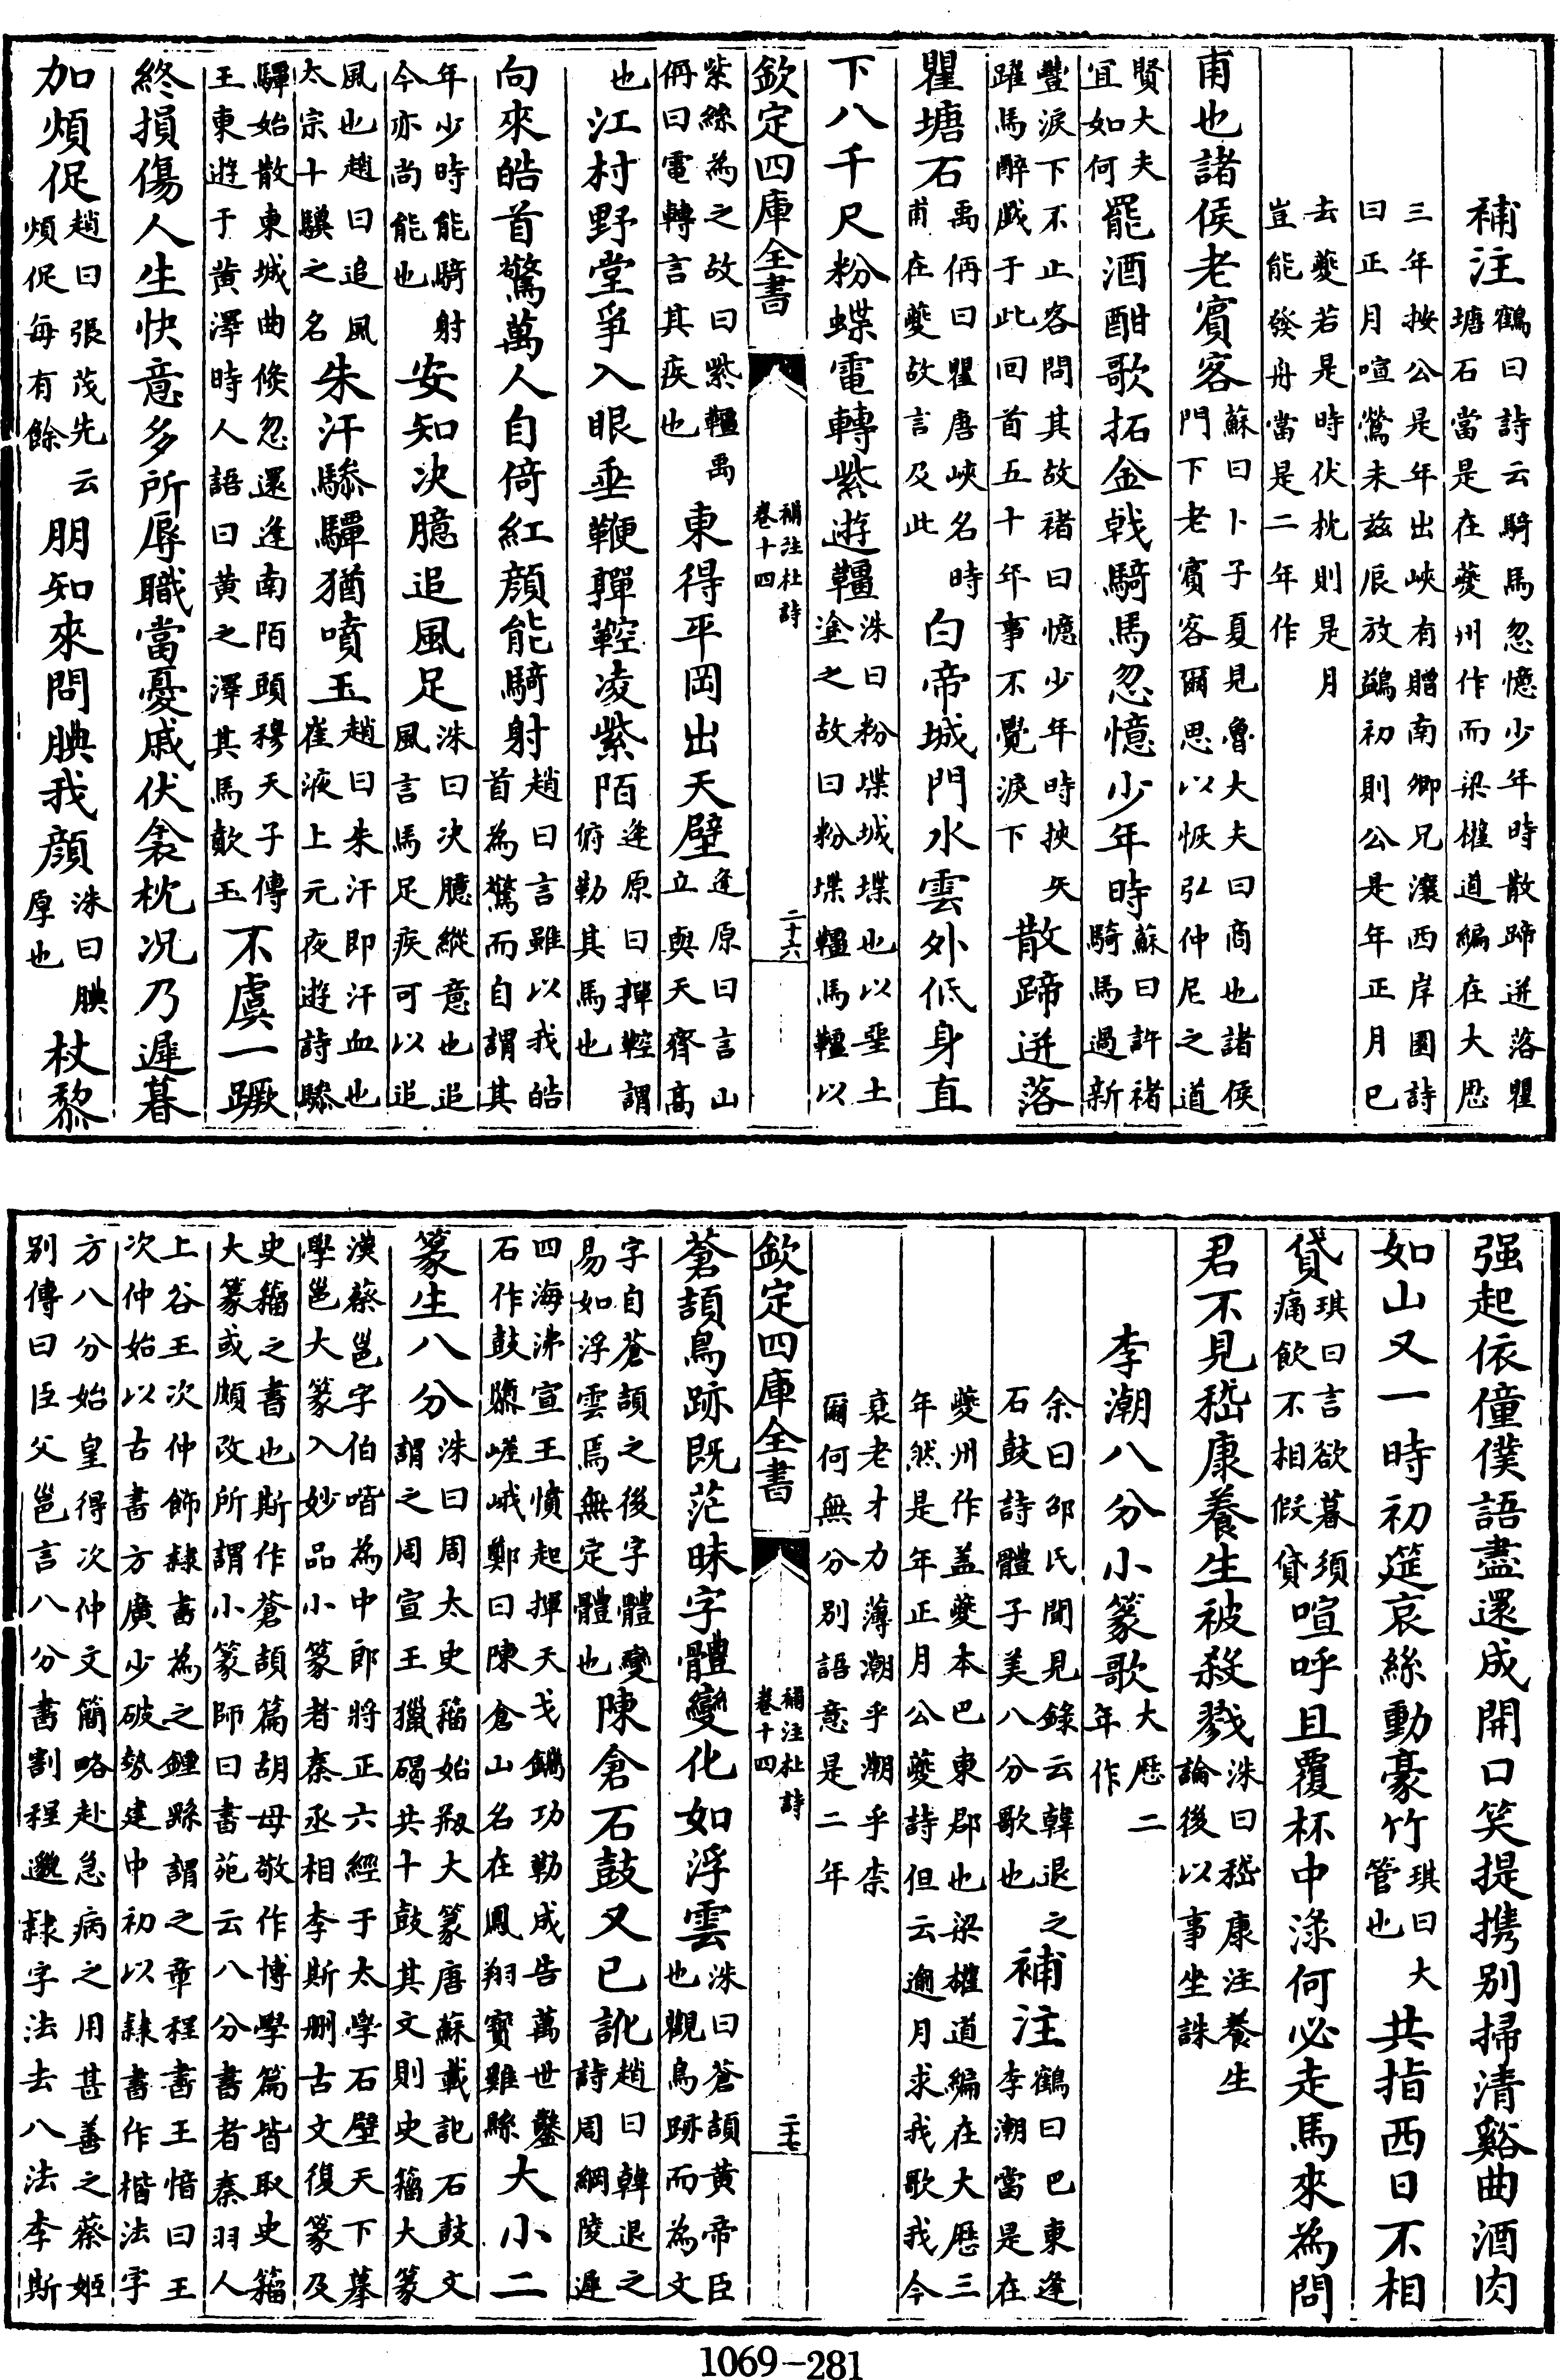 補注鶴曰詩云騎馬忽憶少年時散蹄迸落瞿
塘石當是在夔州作而梁權道編在大厯
三年按公是年出峽有贈南卿兄瀼西岸園詩
曰正月喧鶯未兹辰放鷁初則公是年正月已
去夔若是時伏枕則是月
豈能發舟當是二年作
甫也諸侯老賓客蘇曰卜子夏見魯大夫曰商也諸侯
門下老賓客爾思以恢弘仲尼之道
賢大夫
宜如何罷酒酣歌拓金戟騎馬忽憶少年時蘇曰許褚
騎馬過新
豐淚下不止客問其故褚曰憶少年時挾矢
躍馬醉戯于此回首五十年事不覺淚下散蹄迸落
瞿塘石禹偁曰瞿唐峽名時
甫在夔故言及此白帝城門水雲外低身直
下八千尺粉蝶電轉紫遊韁洙曰粉堞城堞也以堊土
塗之故曰粉堞韁馬韁以
欽定四庫全書
補注杜詩
卷十四
二十六
紫絲為之故曰紫韁禹
偁曰電轉言其疾也東得平岡出天壁逢原曰言山
立與天齊高
也江村野堂爭入眼垂鞭嚲鞚凌紫陌逢原曰嚲鞚謂
俯勒其馬也
向來皓首驚萬人自倚紅顔能騎射趙曰言雖以我皓
首為驚而自謂其
年少時能騎射
今亦尚能也安知决臆追風足洙曰决臆縱意也追
風言馬足疾可以追
風也趙曰追風
太宗十驥之名朱汗驂驔猶噴玉趙曰朱汗即汗血也
崔液上元夜遊詩驂
驔始散東城曲倐忽還逢南陌頭穆天子傳
王東遊于黄澤時人語曰黄之澤其馬歕玉不虞一蹶
終損傷人生快意多所辱職當憂戚伏衾枕况乃遲暮
加煩促趙曰張茂先云
煩促每有餘朋知來問腆我顔洙曰腆
厚也杖藜
强起依僮僕語盡還成開口笑提携别掃清谿曲酒肉
如山又一時初筵哀絲動豪竹琪曰大
管也共指西日不相
貸琪曰言欲暮須
痛飲不相假貸喧呼且覆杯中渌何必走馬來為問
君不見嵇康養生被殺戮洙曰嵇康注養生
論後以事坐誅
李潮八分小篆歌大厯二
年作
余曰邵氏聞見錄云韓退之
石鼓詩體子美八分歌也補注鶴曰巴東逢
李潮當是在
夔州作盖夔本巴東郡也梁權道編在大厯三
年然是年正月公夔詩但云逾月求我歌我今
衰老才力薄潮乎潮乎柰
爾何無分別語意是二年
欽定四庫全書
補注杜詩
卷十四
二十七
蒼頡鳥跡既茫昧字體變化如浮雲洙曰蒼頡黄帝臣
也觀鳥跡而為文
字自蒼頡之後字體變
易如浮雲焉無定體也陳倉石鼓又已訛趙曰韓退之
詩周綱陵遲
四海沸宣王憤起揮天戈鐫功勒成告萬世鑿
石作鼓隳嵯峨鄭曰陳倉山名在鳳翔寳雞縣大小二
篆生八分洙曰周太史籀始剏大篆唐蘇載記石鼓文
謂之周宣王獵碣共十鼓其文則史籀大篆
漢蔡邕字伯喈為中郎將正六經于太學石壁天下摹
學邕大篆入妙品小篆者秦丞相李斯删古文復篆及
史籀之書也斯作蒼頡篇胡母敬作博學篇皆取史籀
大篆或頗改所謂小篆師曰書苑云八分書者秦羽人
上谷王次仲飾隸書為之鍾繇謂之章程書王愔曰王
次仲始以古書方廣少破勢建中初以隸書作楷法字
方八分始皇得次仲文簡略赴急病之用甚善之蔡姬
别傳曰臣父邕言八分書割程邈隸字法去八法李斯
1069-281